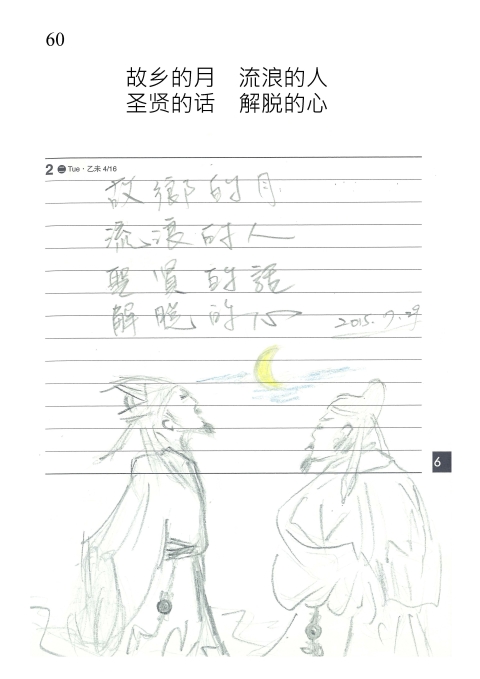 60
故乡的月　流浪的人
圣贤的话　解脱的心
2 ㊁ Tue · 乙未 4/16
故鄉的月
流浪的人
聖賢的話
解脫的心
2015.7.29
6